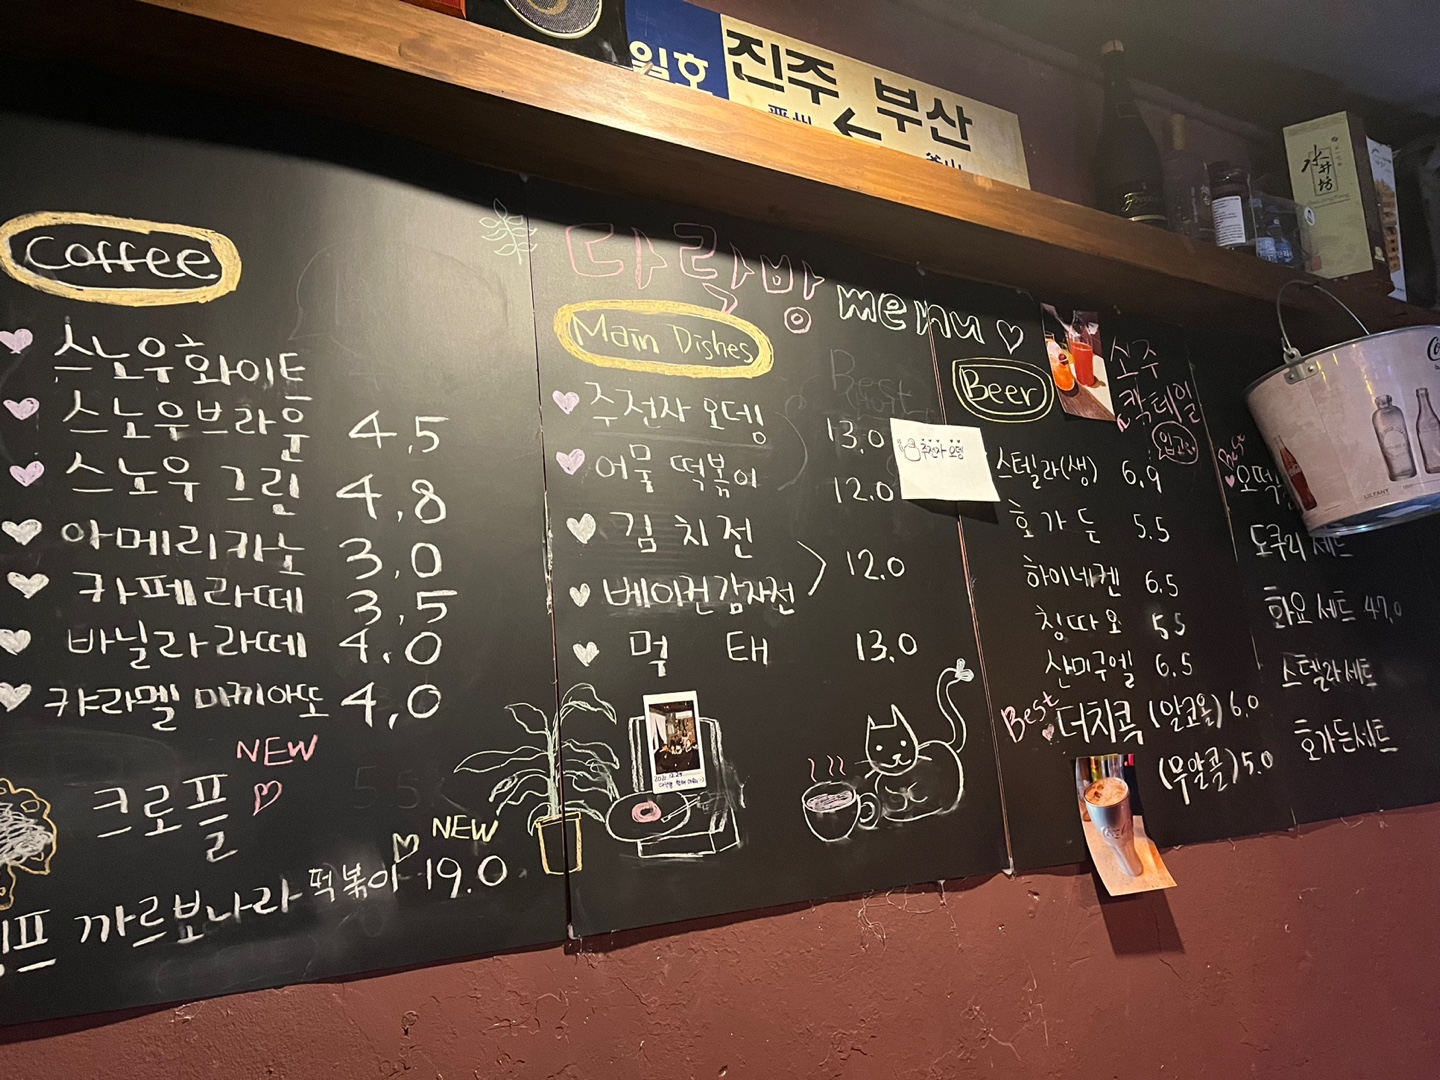 일호
진주 부산
晋州 ← 釜山
水井坊
Coffee
스노우화이트
스노우브라운 4,5
스노우 그린 4,8
아메리카노 3,0
카페라떼 3,5
바닐라라떼 4.0
캬라멜 마끼아또 4,0
NEW
크로플
NEW
까르보나라 떡볶이 19.0
다락방 menu
Main Dishes
Best
주전자 오뎅 13.0
어묵 떡볶이 12.0
김치전
베이컨감자전 12.0
먹태 13.0
주전자 오뎅
Beer
소주
칵테일
입고
스텔라(생) 6.9
호가든 5.5
하이네켄 6.5
칭따오 5.5
산미구엘 6.5
Best 더치콕 (알코올) 6.0
(무알콜) 5.0
Best
도쿠리 세트
화요세트 47.0
스텔라세트
호가든세트